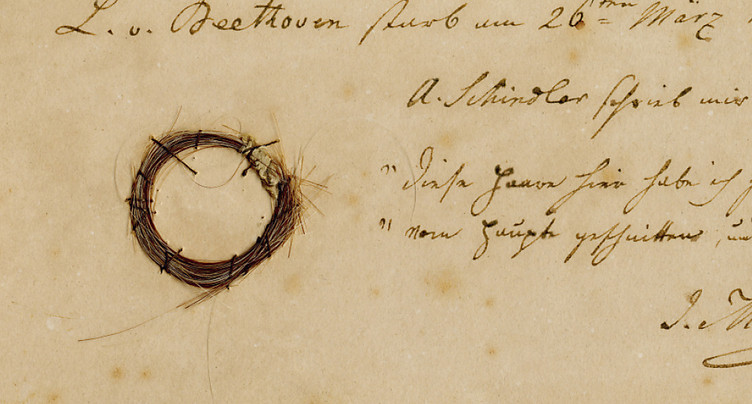 L. v. Beethoven starb am 26ten März
A. Schindler schrieb mir
" diese Haare hier habe ich
" vom Haupte geschnitten,